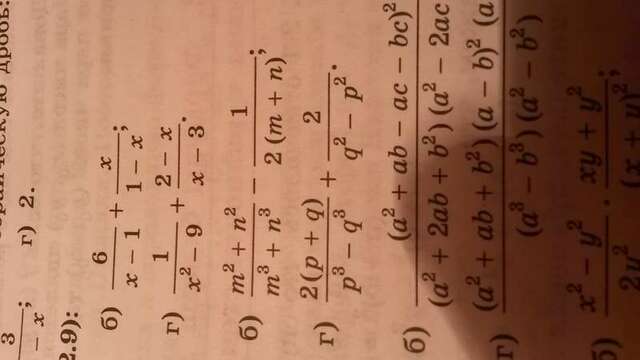 г) 2.
3/(– x);
2.9):
б) 6/(x – 1) + x/(1 – x);
г) 1/(x² – 9) + (2 – x)/(x – 3).
б) (m² + n²)/(m³ + n³) – 1/(2(m + n));
г) 2(p + q)/(p³ – q³) + 2/(q² – p²).
б) (a² + ab – ac – bc)²/(a² + 2ab + b²)(a² – 2ac
г) (a² + ab + b²)(a – b)² (a/(a³ – b³)(a² – b²)
б) (x² – y²)/2y² · (xy + y²)/(x + y)²;